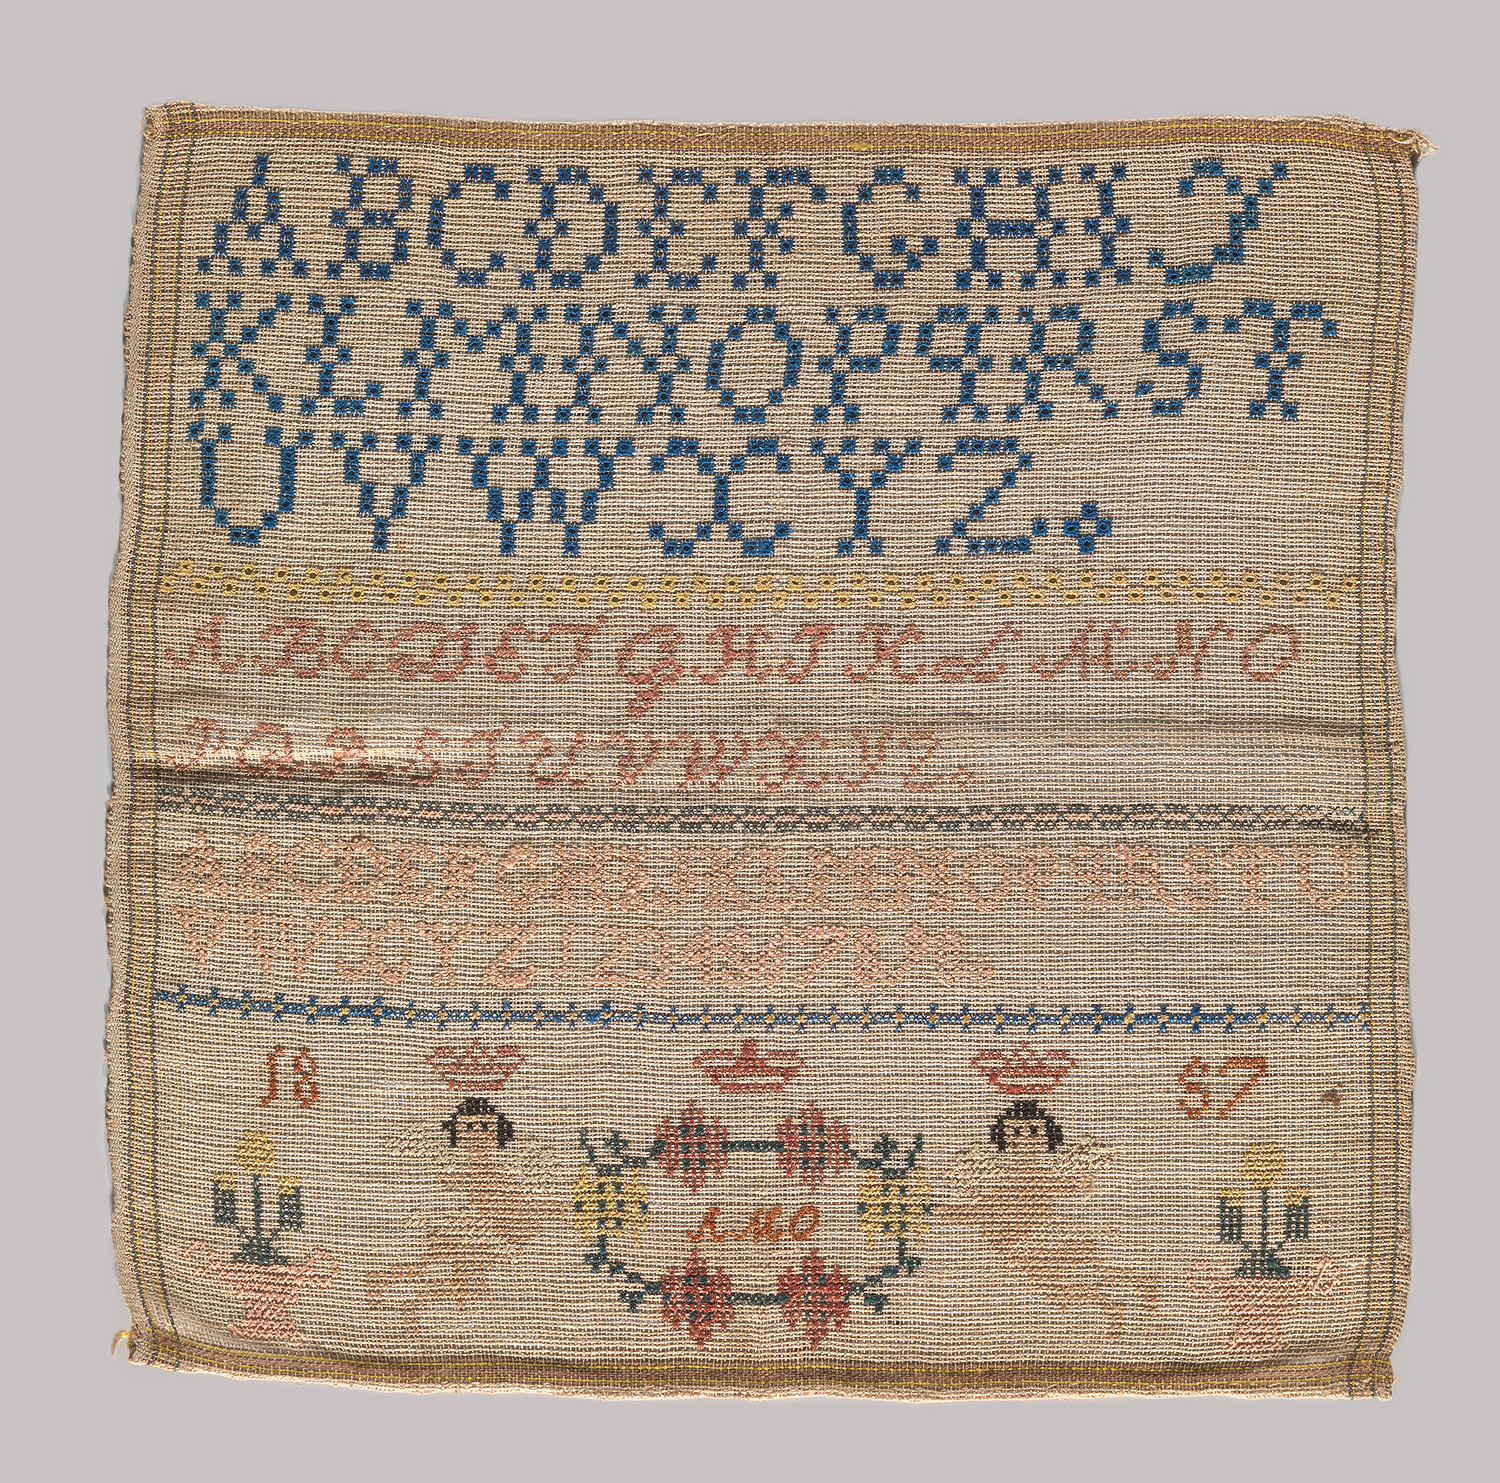 ABCDEFGHIJ
KLMNOPQRST
UVWXYZ.
ABCDEFGHIKLMNO
PQRSTUVWXYZ.
ABCDEFGHIJKLMNOPQRSTU
VWXYZ123456789
18 57
AMO